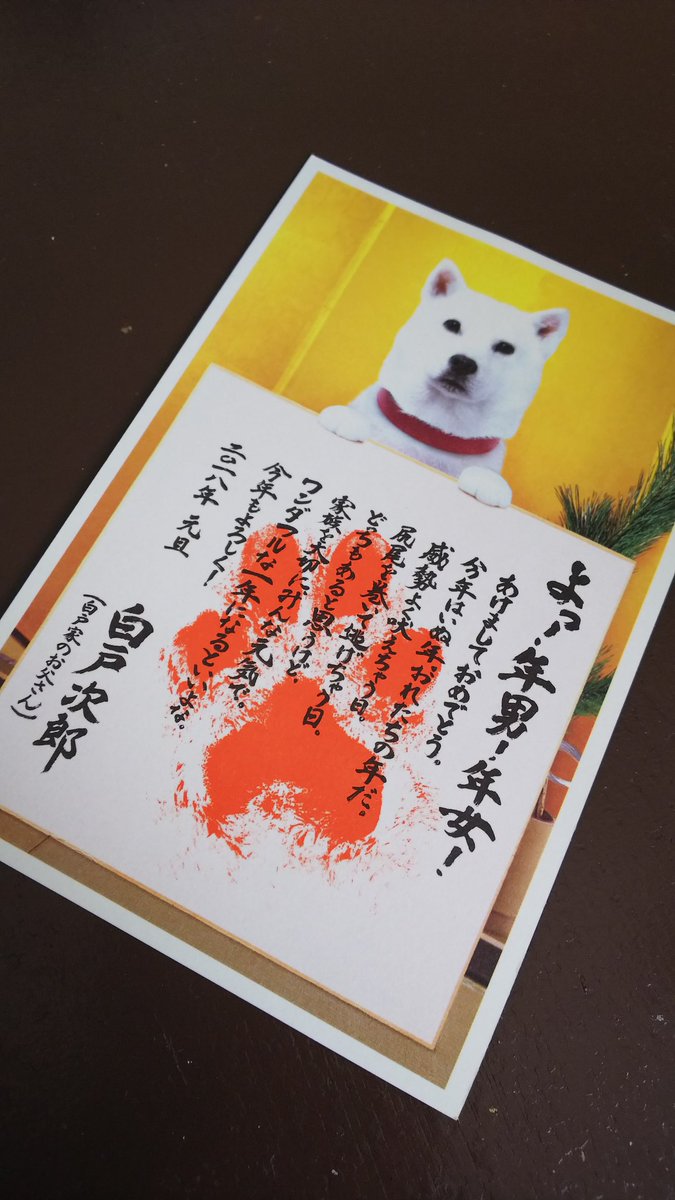 よっ!年男!年女!
あけましておめでとう。
今年はいぬ年おれたちの年だ。
威勢よく吠えちゃう日。
尻尾を巻いて逃げちゃう日。
どっちもあると思うけど、
家族を大切にみんな元気で。
ワンダフルな一年になるといいよな。
今年もよろしく!
二〇一八年 元旦
白戸次郎
(白戸家のお父さん)